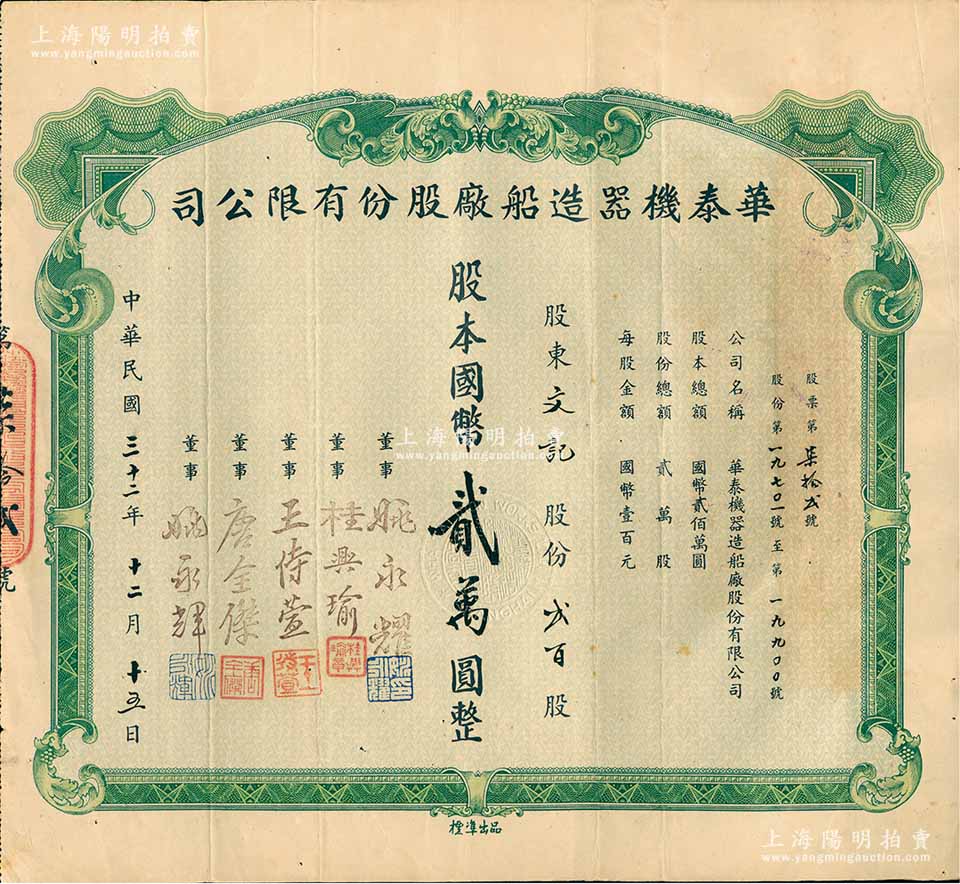 上海陽明拍賣
www.yangmingauction.com
上海陽明拍賣
www.yangmingauction.com
華泰機器造船廠股份有限公司
股票第柒拾弍號
股份第一九七〇一號至第一九九〇〇號
公司名稱 華泰機器造船廠股份有限公司
股本總額 國幣貳佰萬圓
股份總額 貳萬股
每股金額 國幣壹百元
股東文記 股份弍百股
股本國幣貳萬圓整
董事 姚永耀
董事 桂興瑜
董事 王侍萱
董事 唐全傑
董事 姚永輝
中華民國三十二年十二月十五日
第柒拾弍號
上海陽明拍賣
www.yangmingauction.com
標準出品
上海陽明拍賣
www.yangmingauction.com